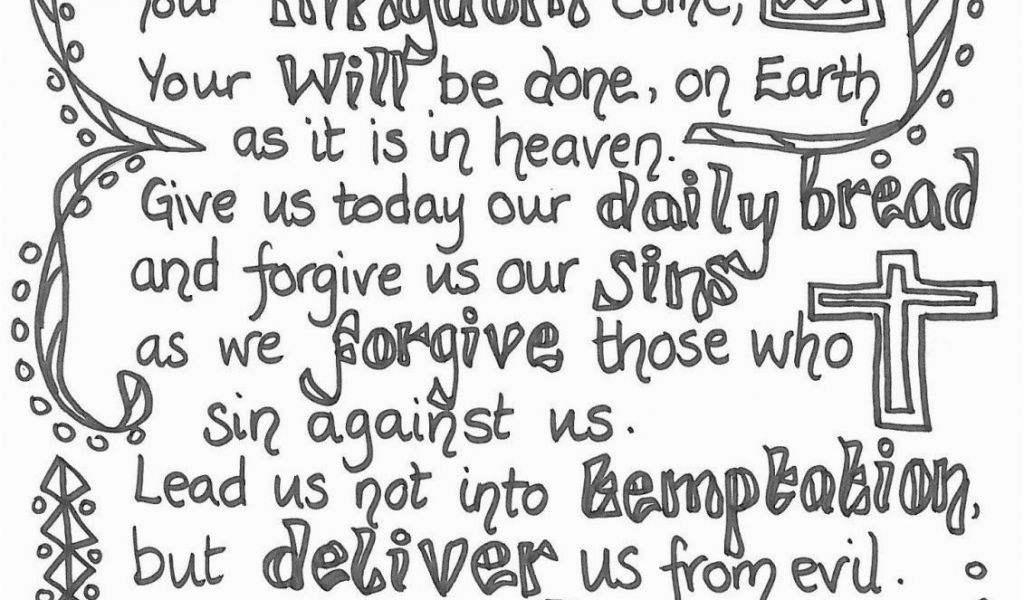 your kingdom come,
Your Will be done, on Earth
as it is in heaven.
Give us today our daily bread
and forgive us our sins
as we forgive those who
sin against us.
Lead us not into temptation,
but deliver us from evil.